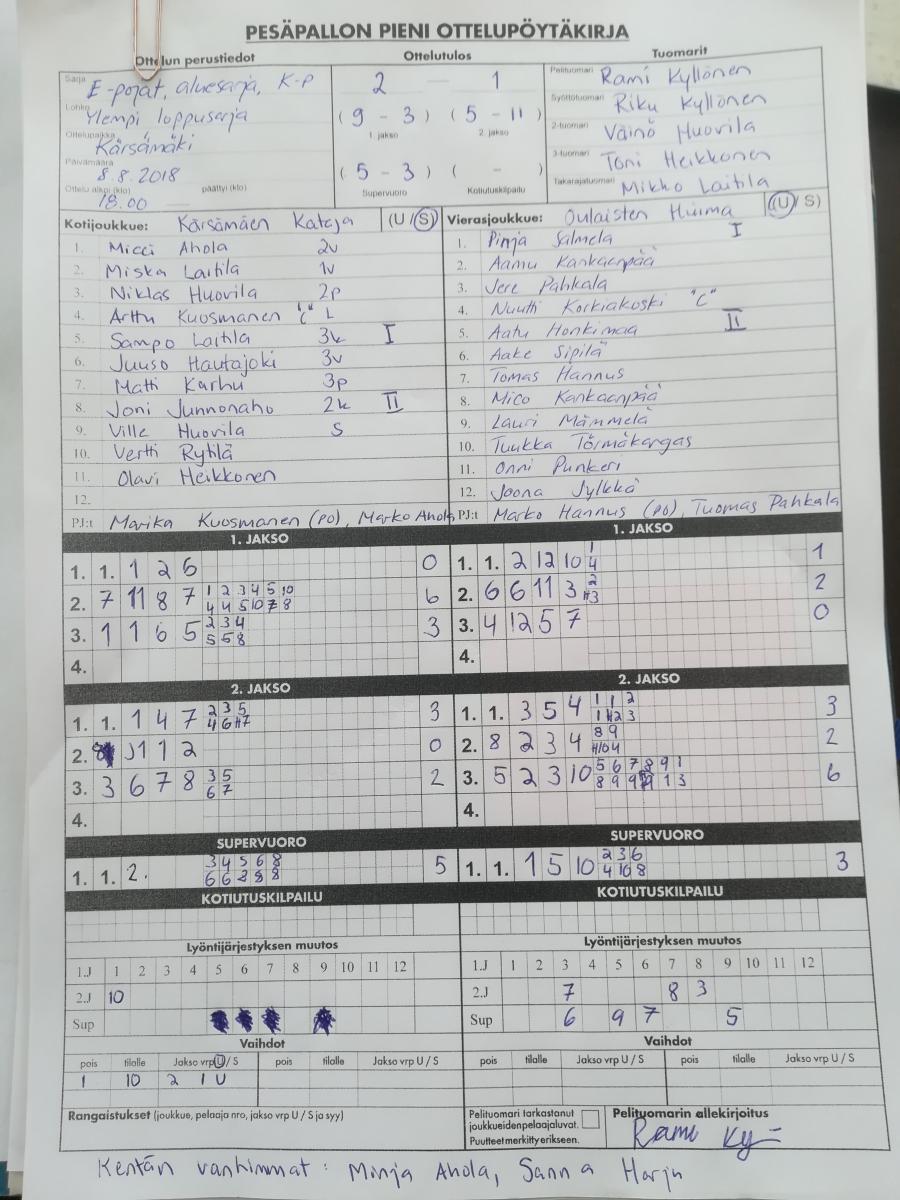 PESÄPALLON PIENI OTTELUPÖYTÄKIRJA
Ottelun perustiedot
Sarja E-pojat, aluesarja, K-P
Lohko Ylempi loppusarja
Ottelupaikka Kärsämäki
Päivämäärä 8.8.2018
Ottelu alkoi (klo) päättyi (klo)
18.00
Ottelutulos
2 — 1
(9 - 3) (5 - 11)
1. jakso 2. jakso
(5 - 3) ( - )
Supervuoro Kotiutuskilpailu
Tuomarit
Pelituomari Rami Kyllönen
Syöttötuomari Riku Kyllönen
2-tuomari Väinö Huovila
3-tuomari Toni Heikkonen
Takarajatuomari Mikko Laitila
Kotijoukkue: Kärsämäen Kataja (U / S)
1. Micci Ahola 2v
2. Miska Laitila 1v
3. Niklas Huovila 2p
4. Arttu Kuosmanen "C" L
5. Sampo Laitila 3k I
6. Juuso Hautajoki 3v
7. Matti Karhu 3p
8. Joni Junnonaho 2k II
9. Ville Huovila S
10. Vertti Rytilä
11. Olavi Heikkonen
12.
PJ:t Marika Kuosmanen (PO), Marko Ahola
Vierasjoukkue: Oulaisten Huima (U / S)
1. Pinja Salmela I
2. Aamu Kankaanpää
3. Jere Pahkala
4. Nuutti Korkiakoski "C"
5. Aatu Honkimaa II
6. Aake Sipilä
7. Tomas Hannus
8. Mico Kankaanpää
9. Lauri Mämmelä
10. Tuukka Törmäkangas
11. Onni Punkeri
12. Joona Jylkkä
PJ:t Marko Hannus (PO), Tuomas Pahkala
1. JAKSO
1. 1. 1 2 6 0
2. 7 11 8 7 1 2 3 4 5 10 6
4 4 5 10 7 8
3. 1 1 6 5 2 3 4 3
5 5 8
4.
1. JAKSO
1. 1. 2 12 10 1 1
4
2. 6 6 11 3 2 2
H3
3. 4 12 5 7 0
4.
2. JAKSO
1. 1. 1 4 7 2 3 5 3
4 6 H7
2. J 1 1 2 0
3. 3 6 7 8 3 5 2
6 7
4.
2. JAKSO
1. 1. 3 5 4 1 1 2 3
1 H2 3
2. 8 2 3 4 8 9 2
H10 4
3. 5 2 3 10 5 6 7 8 9 1 6
8 9 9 1 3
4.
SUPERVUORO
1. 1. 2. 3 4 5 6 8 5
6 6 8 8 8
SUPERVUORO
1. 1. 1 5 10 2 3 6 3
4 10 8
KOTIUTUSKILPAILU
KOTIUTUSKILPAILU
Lyöntijärjestyksen muutos
1.J 1 2 3 4 5 6 7 8 9 10 11 12
2.J 10
Sup
Lyöntijärjestyksen muutos
1.J 1 2 3 4 5 6 7 8 9 10 11 12
2.J 7 8 3
Sup 6 9 7 5
Vaihdot
pois tilalle Jakso vrp U / S pois tilalle Jakso vrp U / S
1 10 2 1 U
Vaihdot
pois tilalle Jakso vrp U / S pois tilalle Jakso vrp U / S
Rangaistukset (joukkue, pelaaja nro, jakso vrp U / S ja syy)
Pelituomari tarkastanut
joukkueiden pelaajaluvat.
Puutteet merkitty erikseen.
Pelituomarin allekirjoitus
Rami Ky
Kentän vanhimmat: Minja Ahola, Sanna Harju